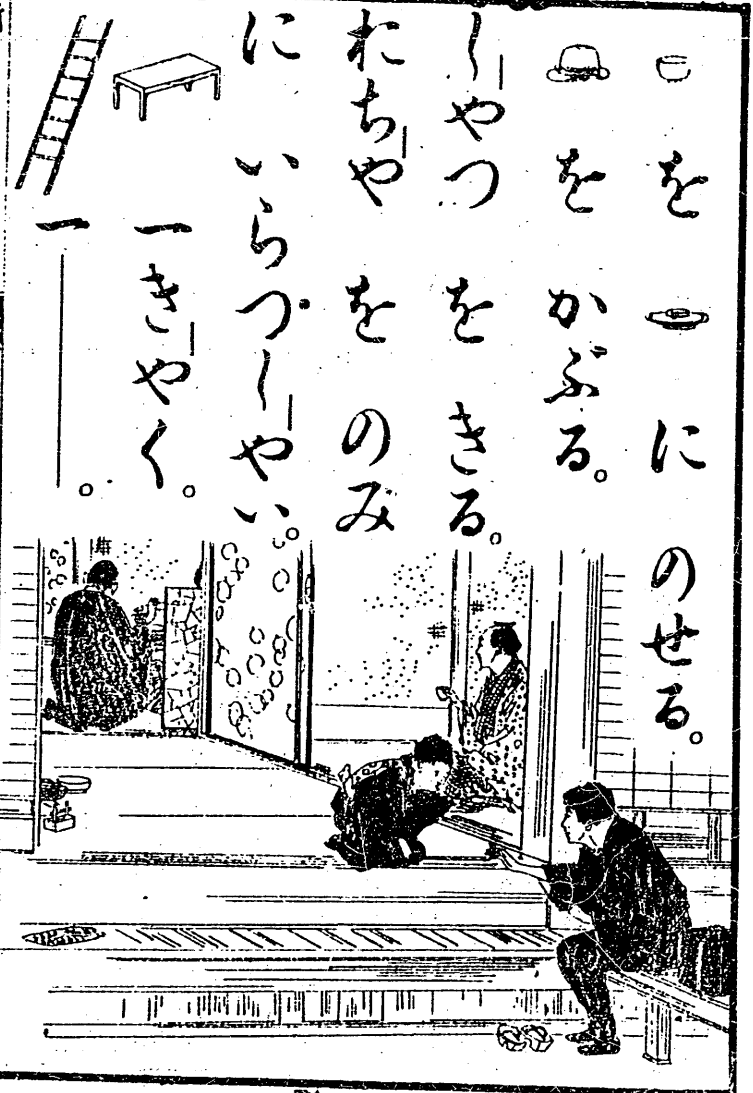 を に のせる。
を かぶる。
しやつ を きる。
おちや を のみ
に いらつしやい。
一きやく。
一――。